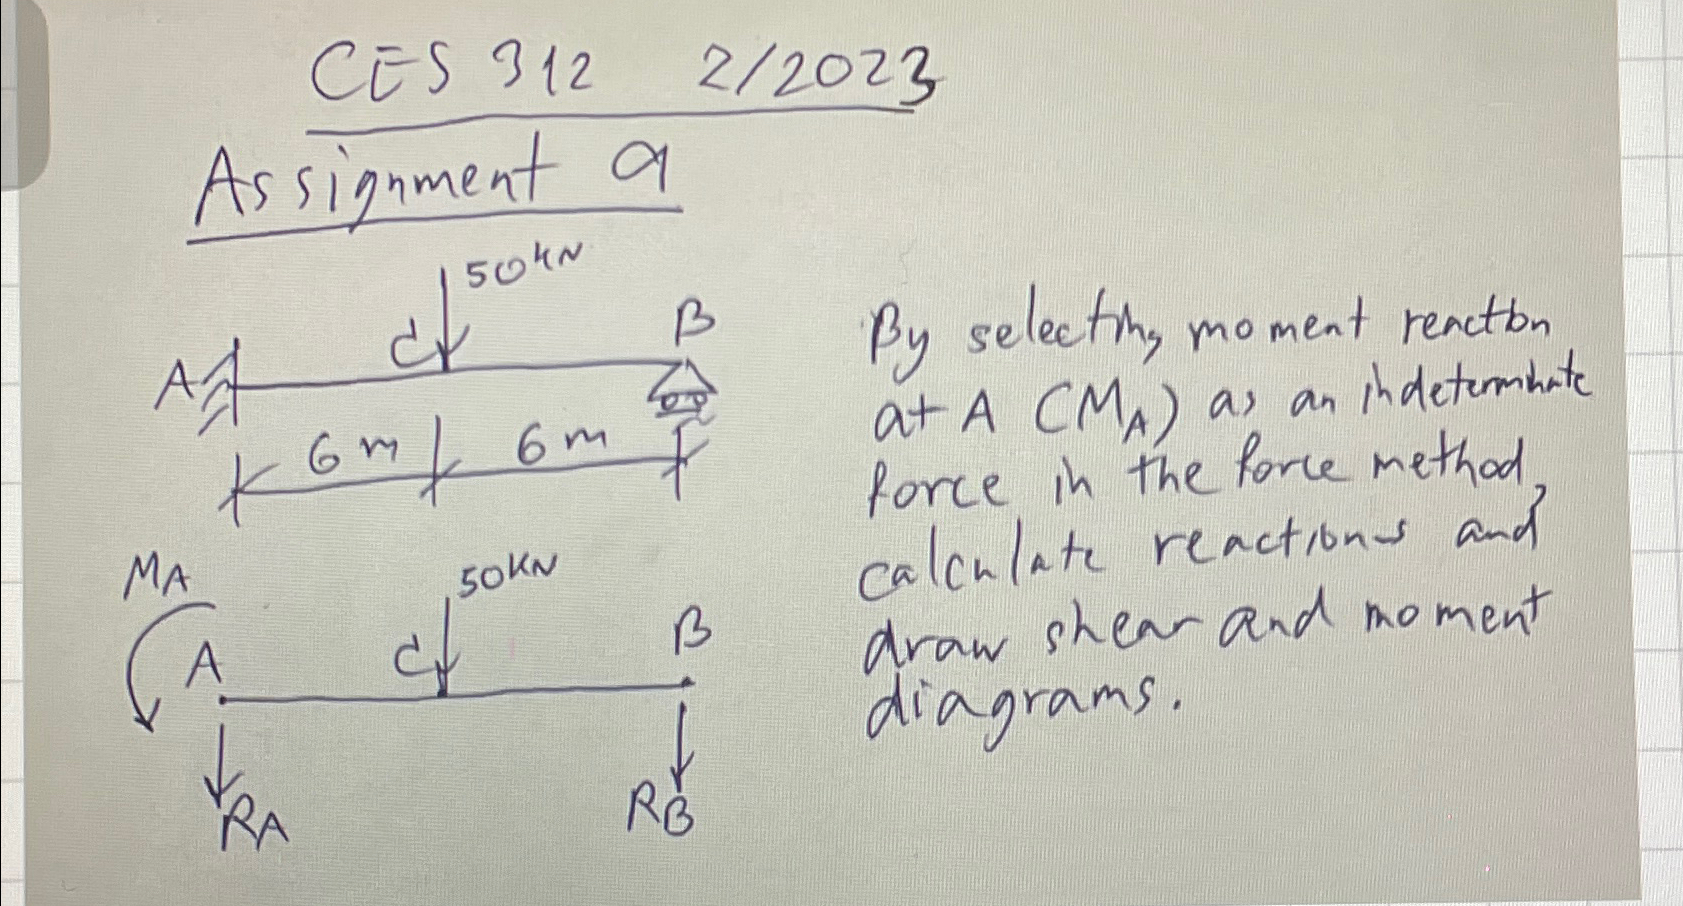 CES 312 2/2023
Assignment 9
50kN
C
B
A
6m 6m
By selecting moment reaction
at A (MA) as an indeterminate
force in the force method,
calculate reactions and
draw shear and moment
diagrams.
MA
50KN
A
C
B
RA
RB